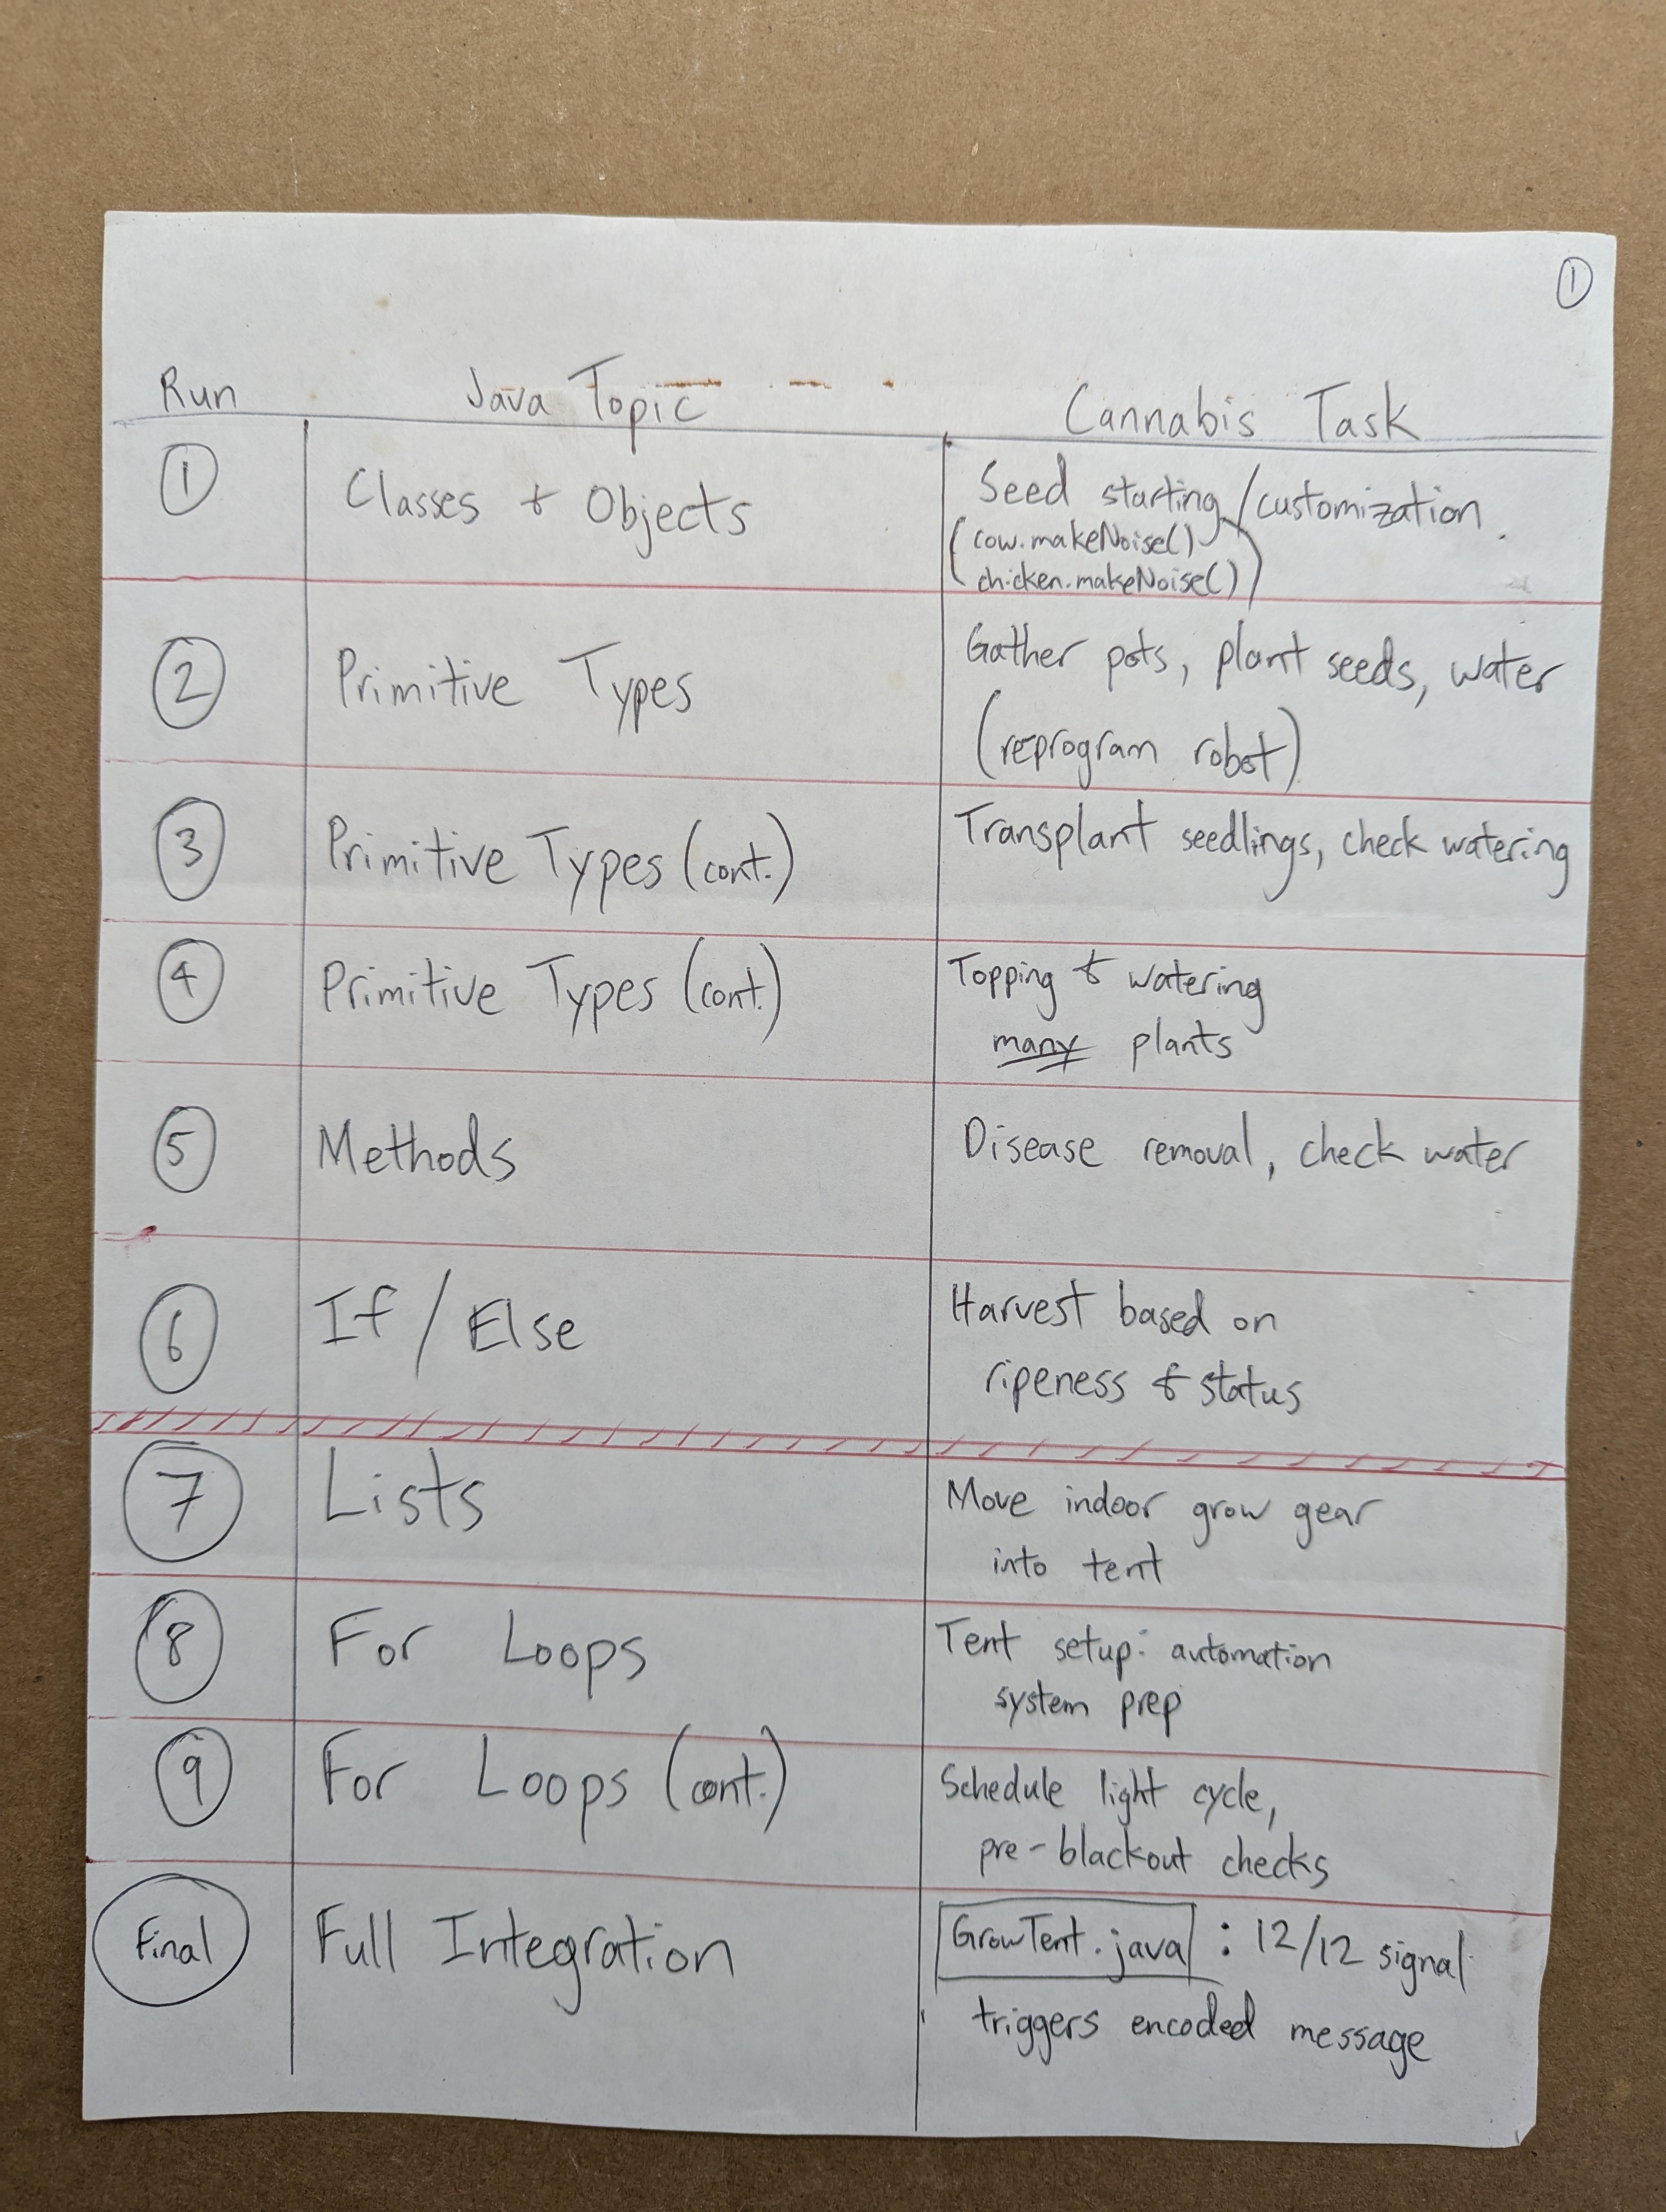 ①
Run Java Topic Cannabis Task
① Classes & Objects Seed starting/customization.
(cow.makeNoise()
chicken.makeNoise())
② Primitive Types Gather pots, plant seeds, water
(reprogram robot)
③ Primitive Types (cont.) Transplant seedlings, check watering
④ Primitive Types (cont.) Topping & watering
many plants
⑤ Methods Disease removal, check water
⑥ If / Else Harvest based on
ripeness & status
⑦ Lists Move indoor grow gear
into tent
⑧ For Loops Tent setup: automation
system prep
⑨ For Loops (cont.) Schedule light cycle,
pre-blackout checks
Final Full Integration GrowTent.java : 12/12 signal
triggers encoded message